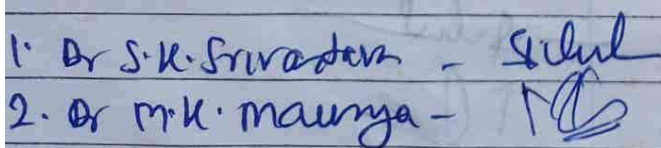 1. Dr S.K. Srivastava -
2. Dr M.K. Maurya -